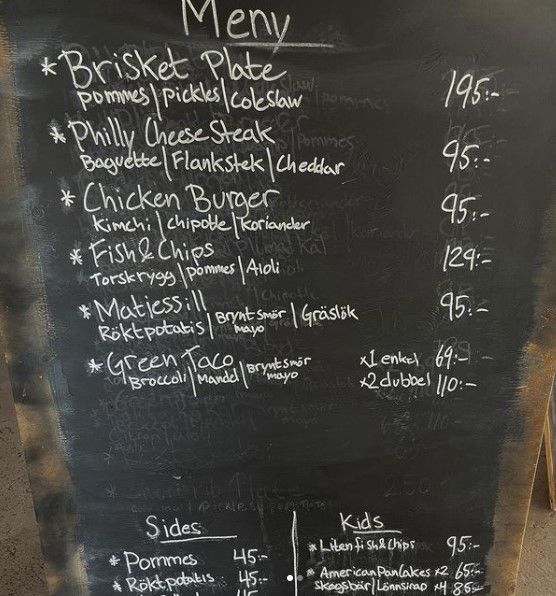 Meny
* Brisket Plate 195:-
pommes | pickles | coleslaw
* Philly Cheese Steak 95:-
Baguette | Flankstek | Cheddar
* Chicken Burger 95:-
Kimchi | Chipotle | Koriander
* Fish & Chips 129:-
Torskrygg | pommes | Aioli
* Matjessill 95:-
Röktpotatis | Brynt smör mayo | Gräslök
* Green Taco x1 enkel 69:-
Broccoli | Mandel | Brynt smör mayo x2 dubbel 110:-
Sides
* Pommes 45:-
* Röktpotatis 45:-
Kids
* Liten fish & chips 95:-
* American Pancakes x2 65:-
skogsbär | Lönnsirap x4 85:-